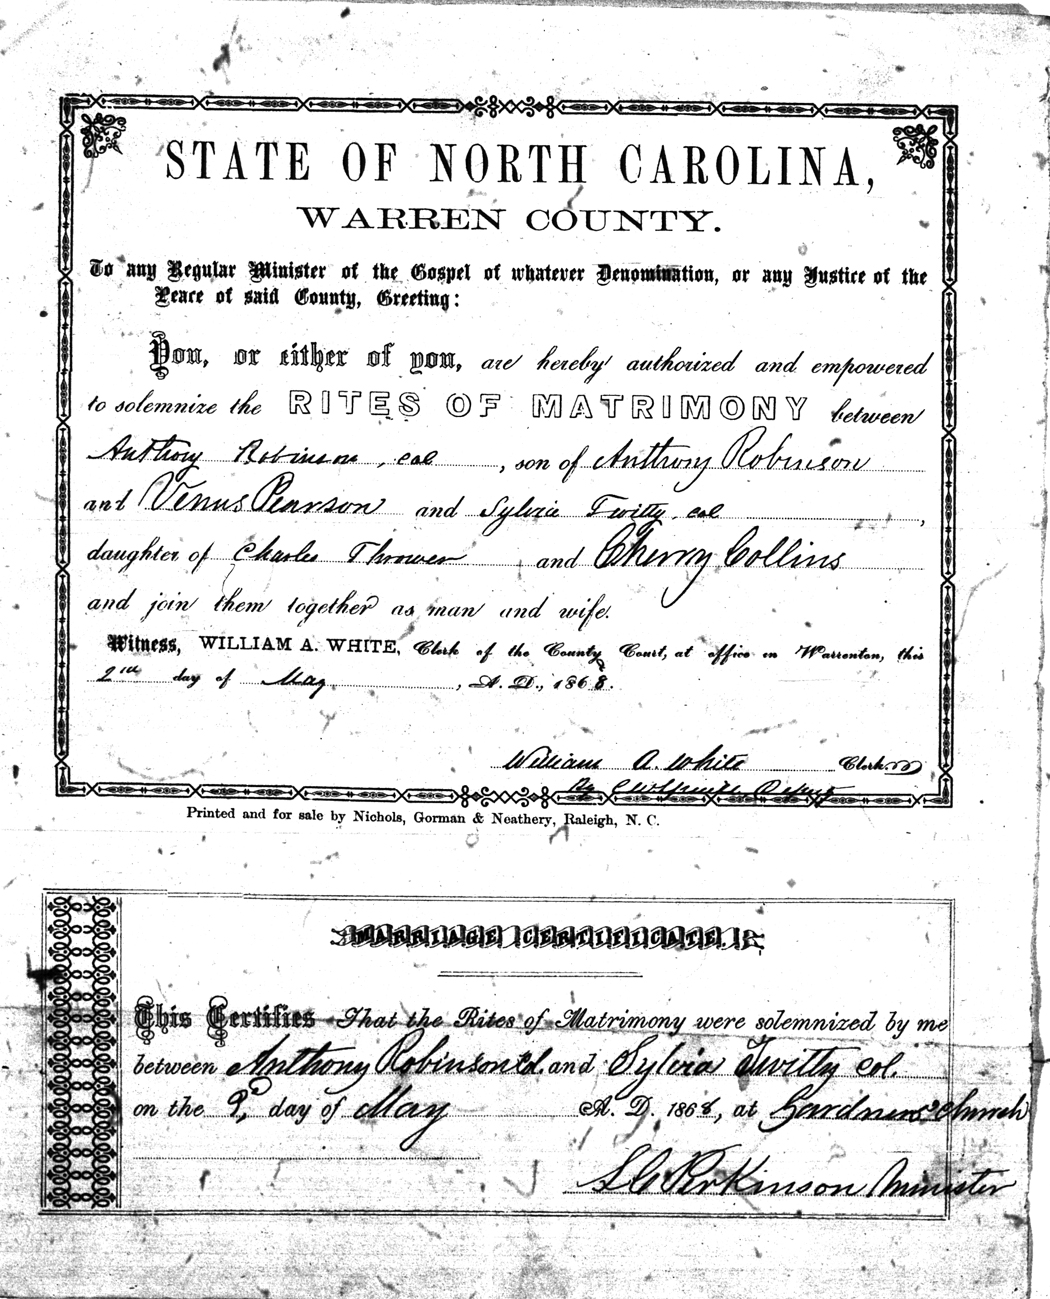 STATE OF NORTH CAROLINA,
WARREN COUNTY.
To any Regular Minister of the Gospel of whatever Denomination, or any Justice of the
Peace of said County, Greeting:
You, or either of you, are hereby authorized and empowered
to solemnize the RITES OF MATRIMONY between
Anthony Robinson, col, son of Anthony Robinson
and Venus Pearson and Sylvia Twitty col,
daughter of Charles Thrower, and Cherry Collins
and join them together as man and wife.
Witness, WILLIAM A. WHITE, Clerk of the County Court, at office in Warrenton, this
2nd day of May, A. D., 1868.
William A. White Clerk
By Deputy
Printed and for sale by Nichols, Gorman & Neathery, Raleigh, N. C.
MARRIAGE CERTIFICATE.
This Certifies That the Rites of Matrimony were solemnized by me
between Anthony Robinson Col. and Sylvia Twitty col.
on the day of May A. D. 1868, at Gardners Church
Perkinson Minister